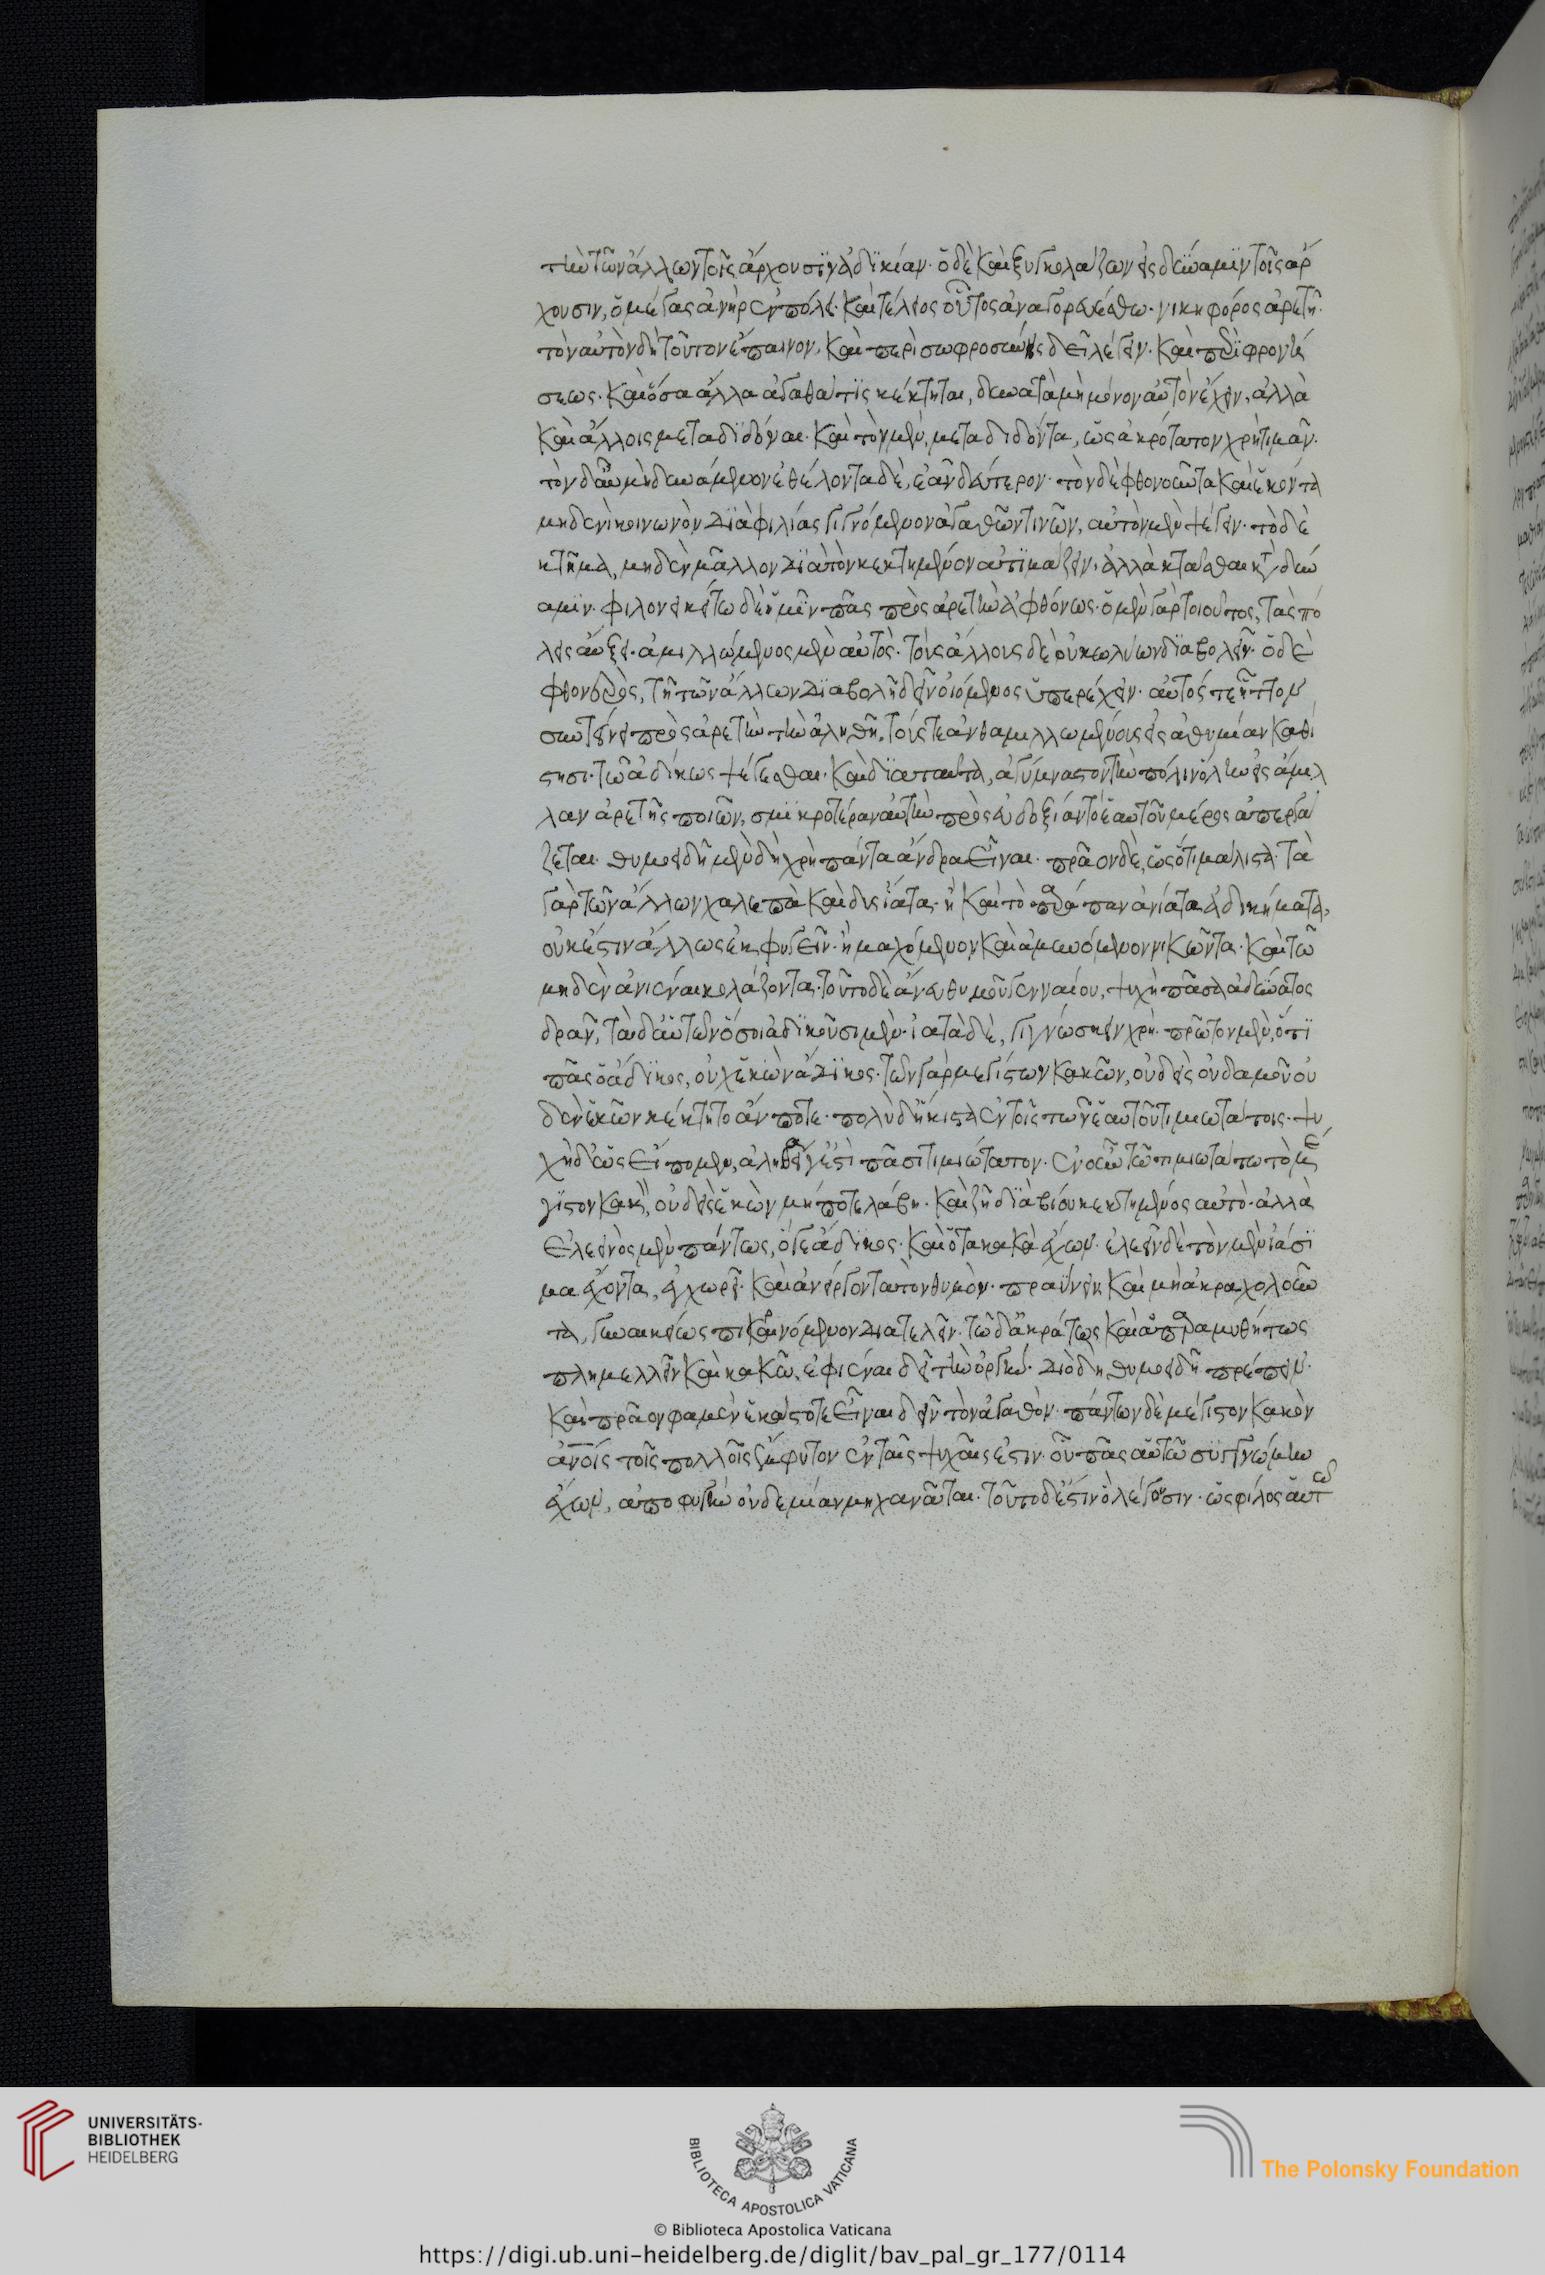 τὴν τῶν ἄλλων τοῖς ἄρχουσϊν ἀδϊκίαν· ὁ δὲ καὶ ξυγκολάζων εἰς δύναμϊν τοῖς ἄρ
χουσιν, ὁ μέγας ἀνὴρ ἐν πόλει· καὶ τέλειος οὗτος ἀναγορευέσθω· νικηφόρος ἀρετῇ·
τὸν αὐτὸν δὴ τοῦτον ἔπαινον, καὶ περὶ σωφροσύνης δεῖ λέγειν· καὶ περὶ φρονή
σεως· καὶ ὅσα ἄλλα ἀγαθά τϊς κέκτηται, δυνατὰ μὴ μόνον αὐτὸν ἔχειν, ἀλλὰ
καὶ ἄλλοις μεταδϊδόναι· καὶ τὸν μὲν, μεταδιδόντα, ὡς ἀκρότατον χρὴ τιμᾶν·
τὸν δ' αὖ μὴ δυνάμενον ἐθέλοντα δὲ, ἐᾶν δεύτερον· τὸν δὲ φθονοῦντα καὶ ἑκόντα
μηδενὶ κοινωνὸν διὰ φιλίας γιγνόμενον ἀγαθῶν τινῶν, αὐτὸν μὲν ψέγειν· τὸ δὲ
κτῆμα, μηδὲν μᾶλλον διὰ τὸν κεκτημένον ἀτϊμάζειν, ἀλλὰ κτᾶσθαι κατὰ δύν
αμϊν· φιλονεικείτω δὲ ἡμῖν πᾶς πρὸς ἀρετὴν ἀφθόνως· ὁ μὲν γὰρ τοιοῦτος, τὰς πό
λεις αὔξει· ἁμιλλώμενος μὲν αὐτὸς· τοὺς ἄλλους δὲ οὐ κωλύων διαβολεῖν· ὁ δὲ
φθονερὸς, τῇ τῶν ἄλλων διαβολῇ δεῖν οἰόμενος ὑπερέχειν· αὐτός τε ἧττον
συντείνει πρὸς ἀρετὴν τὴν ἀληθῆ, τούς τε ἀνθαμιλλωμένους εἰς ἀθυμίαν καθί
στησι· τῷ ἀδίκως ψέγεσθαι· καὶ διὰ ταῦτα, ἀγύμναστον τὴν πόλιν ὅλην εἰς ἅμιλ
λαν ἀρετῆς ποιῶν, σμϊκροτέραν αὐτὴν πρὸς εὐδοξίαν τὸ ἑαυτοῦ μέρος ἀπεργά
ζεται· θυμοειδῆ μὲν δὴ χρὴ πάντα ἄνδρα εἶναι· πρᾶον δὲ, ὡς ὅτι μάλιστα· τὰ
γὰρ τῶν ἄλλων χαλεπὰ καὶ δυσίατα· ἢ καὶ τὸ παράπαν ἀνίατα ἀδικήματα,
οὐκ ἔστιν ἄλλως ἐκφυγεῖν· ἢ μαχόμενον καὶ ἀμυνόμενον νικῶντα· καὶ τῷ
μηδὲν ἀνιέναι κολάζοντα· τοῦτο δὲ ἄνευ θυμοῦ γενναίου, ψυχὴ πᾶσα ἀδύνατος
δρᾶν, τὰ δ' αὖ τῶν ὅσοι ἀδϊκοῦσι μὲν· ἰατὰ δὲ, γιγνώσκειν χρὴ· πρῶτον μὲν, ὅτϊ
πᾶς ὁ ἄδϊκος, οὐχ ἑκὼν ἄδικος· τῶν γὰρ μεγίστων κακῶν, οὐδεὶς οὐδαμοῦ οὐ
δὲν ἑκὼν κέκτητο ἄν ποτε· πολὺ δὴ ἥκιστα ἐν τοῖς τῶν ἑαυτοῦ τιμιωτάτοις· ψυ
χὴ δ' ὡς εἴπομεν, ἀληθείᾳ γε ἐστὶ πᾶσι τιμιώτατον· ἐν οὖν τῷ τιμιωτάτῳ τὸ μέ
γϊστον κακὸν, οὐδεὶς ἑκὼν μή ποτε λάβῃ· καὶ ζῇ διὰ βίου κεκτημένος αὐτό· ἀλλὰ
ἐλεεινὸς μὲν πάντως, ὅ τε ἄδϊκος· καὶ ὁ τὰ κακὰ ἔχων· ἐλεεῖν δὲ τὸν μὲν ἰάσϊ
μα ἔχοντα, ἐγχωρεῖ· καὶ ἀνείργοντα τὸν θυμὸν· πραΰνειν καὶ μὴ ἀκραχολοῦν
τα, γυναικείως πικραινόμενον διατελεῖν· τῷ δ' ἀκράτως καὶ ἀπαραμυθήτως
πλημμελλεῖν καὶ κακῷ, ἐφιέναι δεῖ τὴν ὀργήν· διὸ δὴ θυμοειδῆ πρέπειν·
καὶ πρᾶον φαμὲν ἑκάστοτε εἶναι δεῖν τὸν ἀγαθόν· πάντων δὲ μέγιστον κακὸν
ἀνοῖς τοῖς πολλοῖς ἔμφυτον ἐν ταῖς ψυχαῖς ἐστιν· οὗ πᾶς αὑτῷ συγγνώμην
ἔχων, ἀποφυγὴν οὐδεμίαν μηχανᾶται· τοῦτο δ' ἔστιν ὃ λέγουσιν· ὡς φίλος αὑτῷ
UNIVERSITÄTS-
BIBLIOTHEK
HEIDELBERG
BIBLIOTECA APOSTOLICA VATICANA
The Polonsky Foundation
© Biblioteca Apostolica Vaticana
https://digi.ub.uni-heidelberg.de/diglit/bav_pal_gr_177/0114